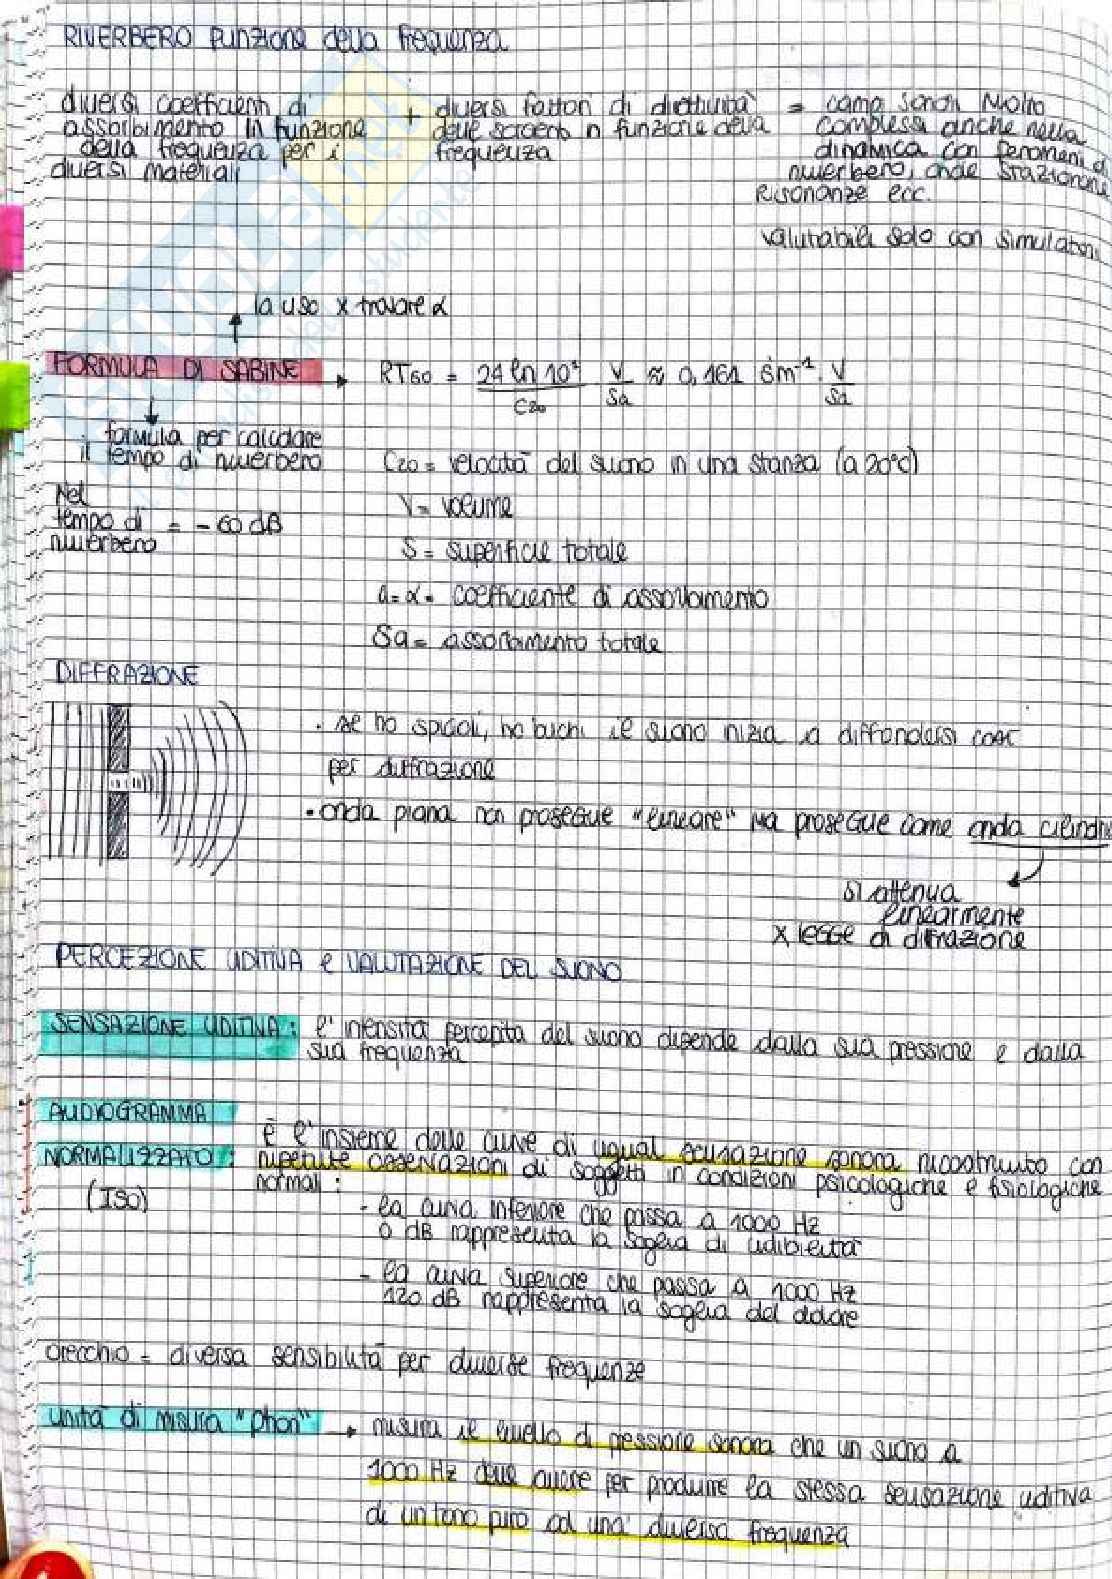 RIVERBERO funzione della frequenza
diversi coefficienti di
assorbimento in funzione
della frequenza per i
diversi materiali
+ diversi fattori di direttività
delle sorgenti in funzione della
frequenza
= campi sonori molto
complessi anche nella
dinamica con fenomeni di
riverbero, onde stazionarie
risonanze ecc.
valutabili solo con simulatori
la uso x trovare α
FORMULA DI SABINE → RT60 = 24 ln 10¹ / C20 · V/Sa ≈ 0,161 sm⁻¹ · V/Sa
formula per calcolare
il tempo di riverbero
C20 = velocità del suono in una stanza (a 20°C)
Nel
tempo di = - 60 dB
riverbero
V = volume
S = superficie totale
a = α = coefficiente di assorbimento
Sa = assorbimento totale
DIFFRAZIONE
· se ho spigoli, ho buchi il suono inizia a diffondersi così
per diffrazione
· onda piana non prosegue "lineare" ma prosegue come onda cilindri
si attenua
linearmente
x legge di diffrazione
PERCEZIONE UDITIVA e VALUTAZIONE DEL SUONO
SENSAZIONE UDITIVA: l'intensità percepita del suono dipende dalla sua pressione e dalla
sua frequenza
AUDIOGRAMMA
NORMALIZZATO:
(ISO)
È l'insieme delle curve di ugual sensazione sonora ricostruito con
ripetute osservazioni di soggetti in condizioni psicologiche e fisiologiche
normali:
- la curva inferiore che passa a 1000 Hz
0 dB rappresenta la soglia di udibilità
- la curva superiore che passa a 1000 Hz
120 dB rappresenta la soglia del dolore
orecchio = diversa sensibilità per diverse frequenze
unità di misura "phon" → misura il livello di pressione sonora che un suono a
1000 Hz deve avere per produrre la stessa sensazione uditiva
di un tono puro ad una diversa frequenza